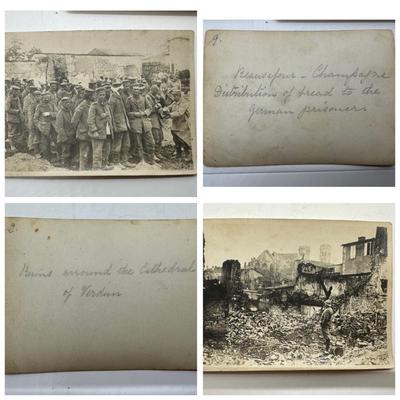 9.
Beausejour - Champagne
Distribution of bread to the
German prisoners
Ruins arround the Cathedral
of Verdun